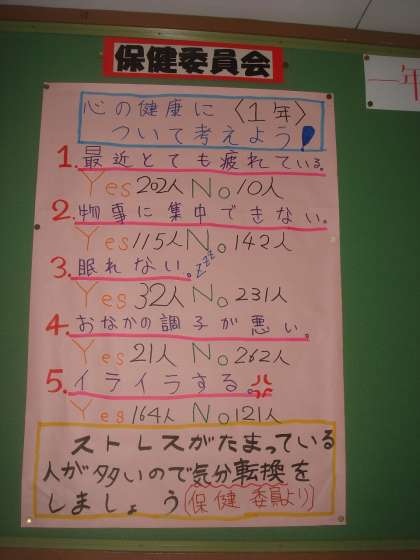 保健委員会
一年
心の健康に〈1年〉
ついて考えよう!
1.最近とても疲れている。
Yes202人 No10人
2.物事に集中できない。
Yes115人 No142人
3.眠れない。zzz
Yes32人 No231人
4.おなかの調子が悪い。
Yes21人 No262人
5.イライラする。
Yes164人 No121人
ストレスがたまっている
人が多いので気分転換を
しましょう(保健委員より)